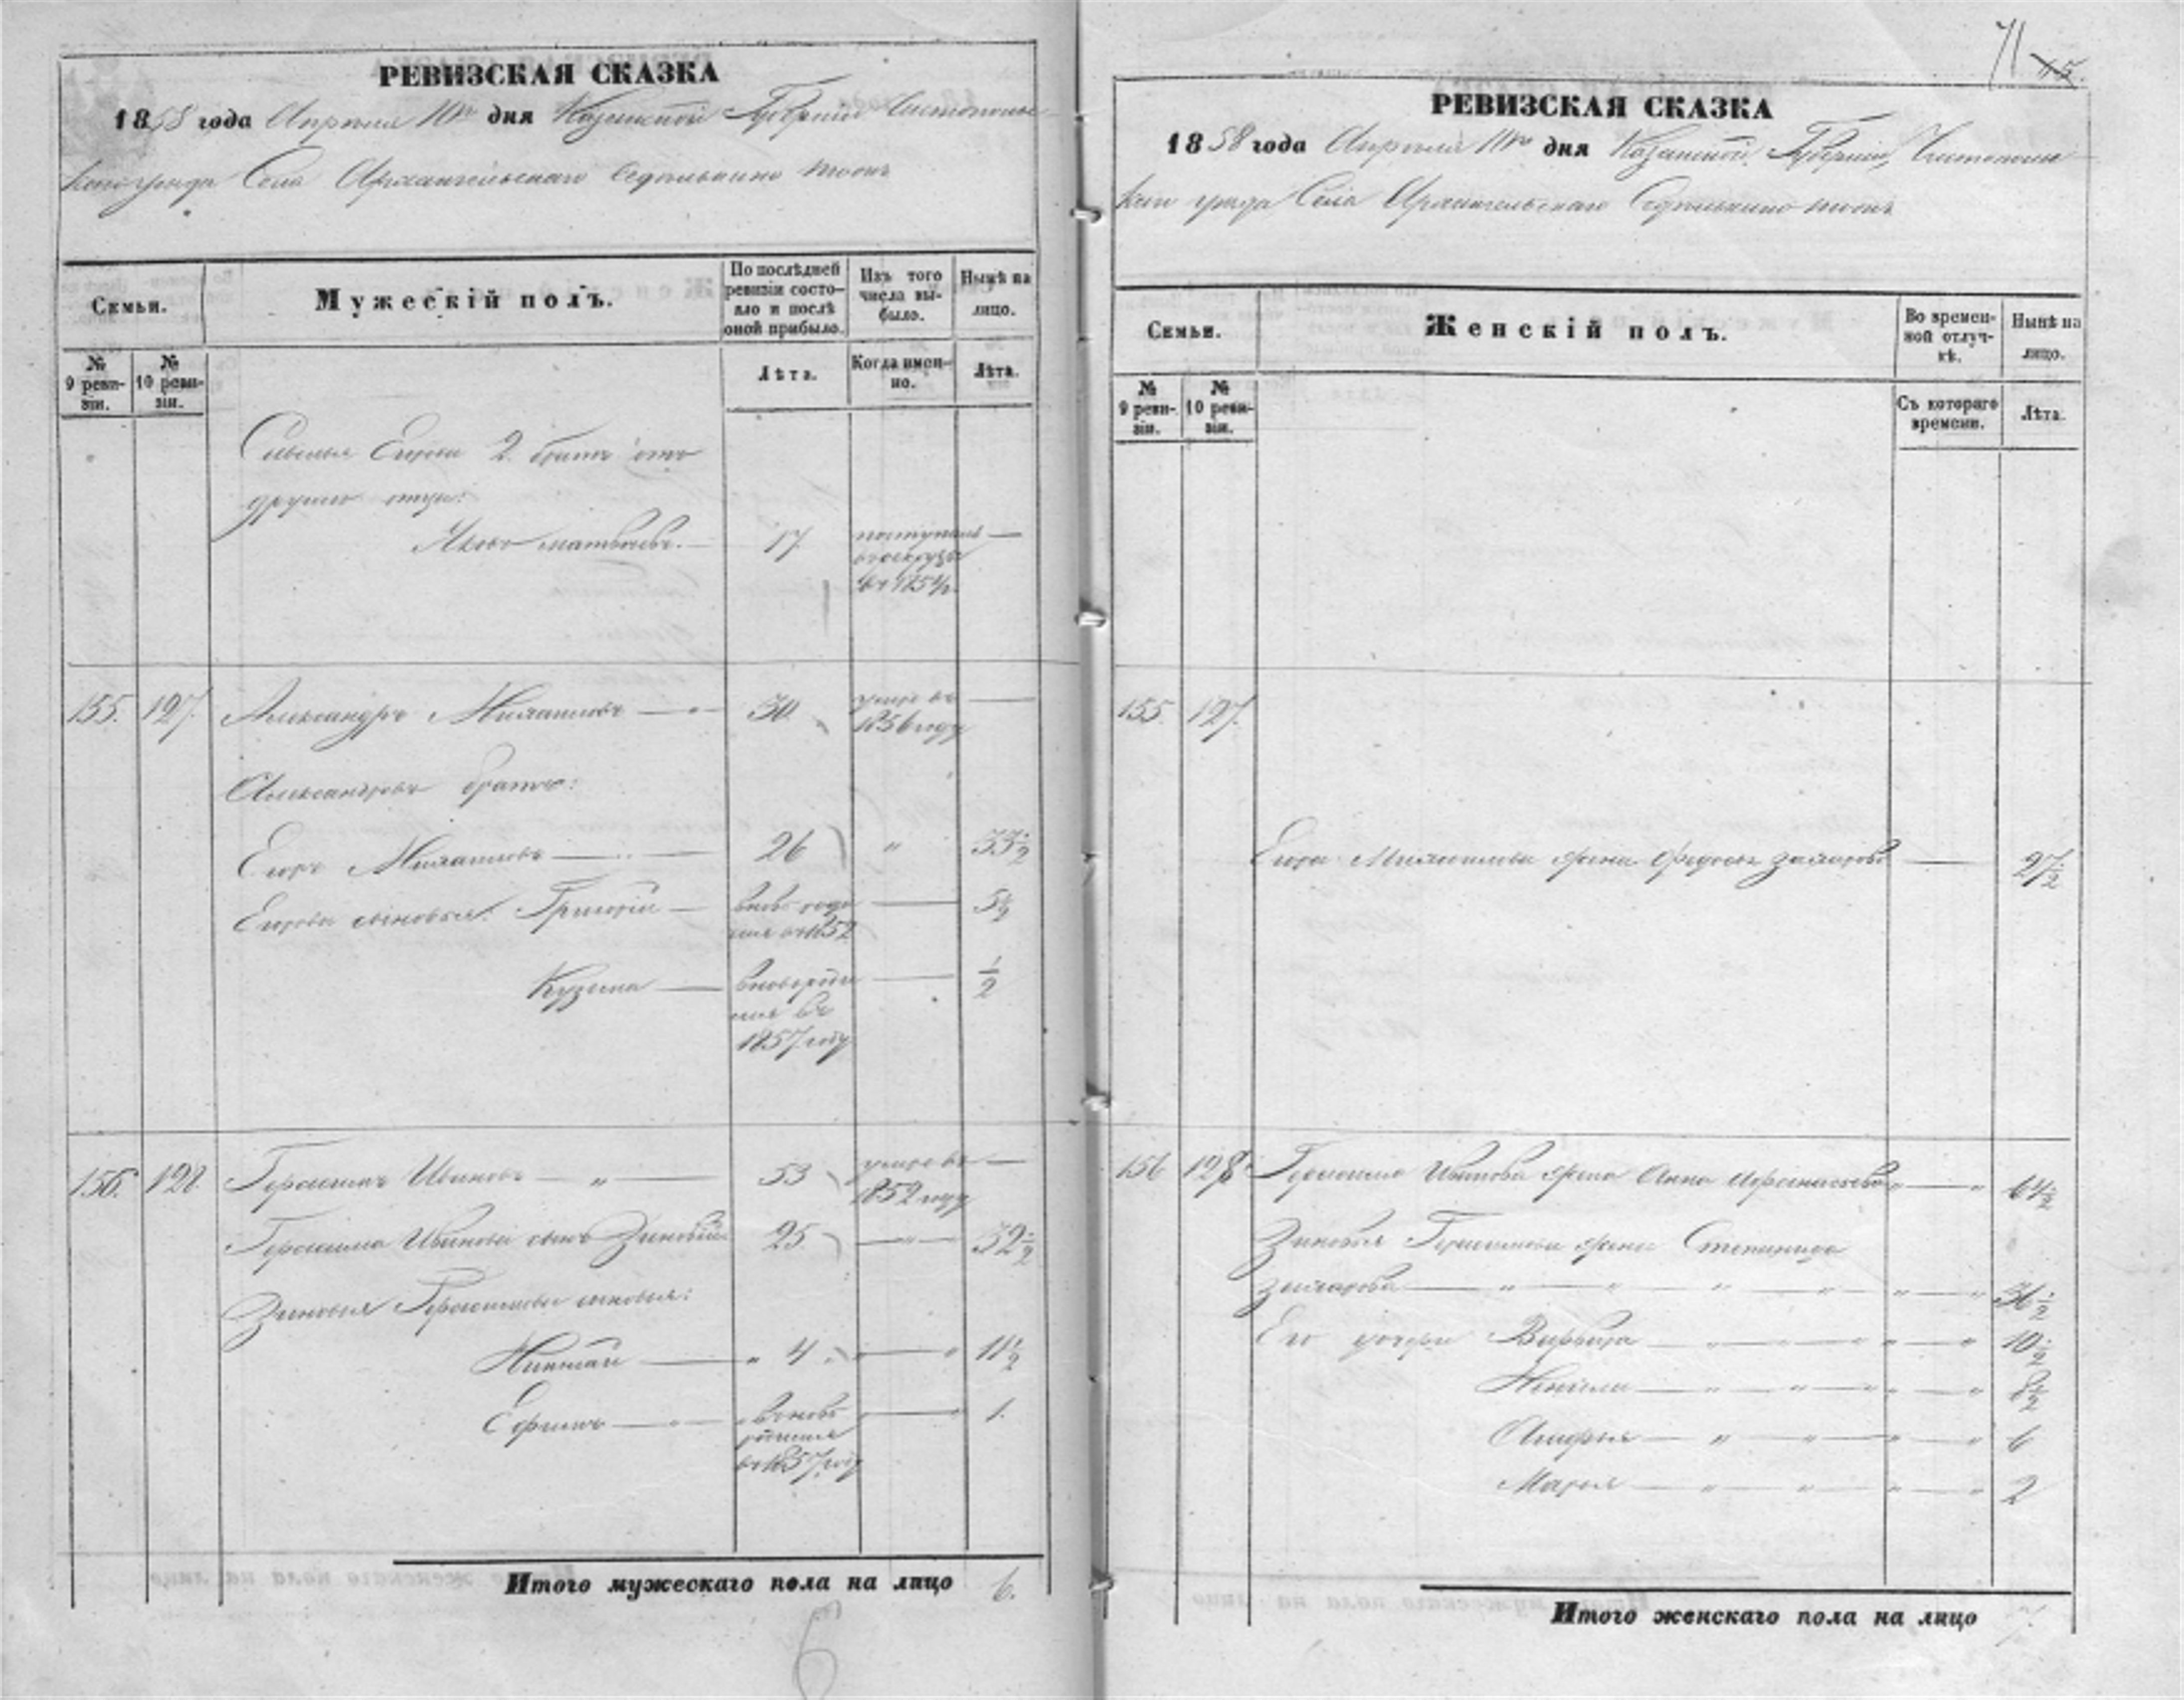 РЕВИЗСКАЯ СКАЗКА
1858 года Апреля 10го дня Казанской Губернии Чистополь-
скаго уезда Села Архангельскаго Седелькино тожъ
Семьи.
Мужескій полъ.
По послѣдней ревизіи состо-
яло и послѣ
оной прибыло.
Изъ того
числа вы-
было.
Нынѣ на
лицо.
№
9 реви-
зіи.
№
10 реви-
зіи.
Лѣта.
Когда имен-
но.
Лѣта.
Савелья Егорова 2 братъ отъ
другаго отца:
Яковъ Матвеевъ. — 17 поступилъ —
в рекруты
въ 1854
155. 127. Александръ Михайловъ — 30 умре въ —
1856 году
Александровъ братъ:
Егоръ Михайловъ — 26 " 33 1/2
Егоровы сыновья: Григорій — вновь роди — 5 1/2
лся въ 1852
Кузьма — вновь роди — 1/2
лся въ
1857 году
156. 128. Герасимъ Ивановъ — " — 53 умре въ —
1852 году
Герасима Иванова сынъ Зиновій 25 — " — 32 1/2
Зиновья Герасимова сыновья:
Николай — " 4 — " 11 1/2
Ефимъ — " — вновь — " 1.
родился
въ 1857 году
Итого мужескаго пола на лицо 6.
6
71 45.
РЕВИЗСКАЯ СКАЗКА
1858 года Апреля 10го дня Казанской Губернии, Чистополь-
скаго уезда Села Архангельскаго Седелькино тожъ
Семьи.
Женскій полъ.
Во времен-
ной отлуч-
кѣ.
Нынѣ на
лицо.
№
9 реви-
зіи.
№
10 реви-
зіи.
Съ котораго
времени.
Лѣта.
155. 127.
Егора Михайлова жена Федосья Захарова — 27 1/2
156 128 Герасима Иванова жена Анна Афанасьева " — " 64 1/2
Зиновья Герасимова жена Степанида
Захарова — " — " — " — " — " — " 36 1/2
Его дочери Варвара — " — " — " — " 10 1/2
— " — " — " — " — " 8 1/2
— " — " — " — " 6
Марья — " — " — " — " 2
Итого женскаго пола на лицо 7.